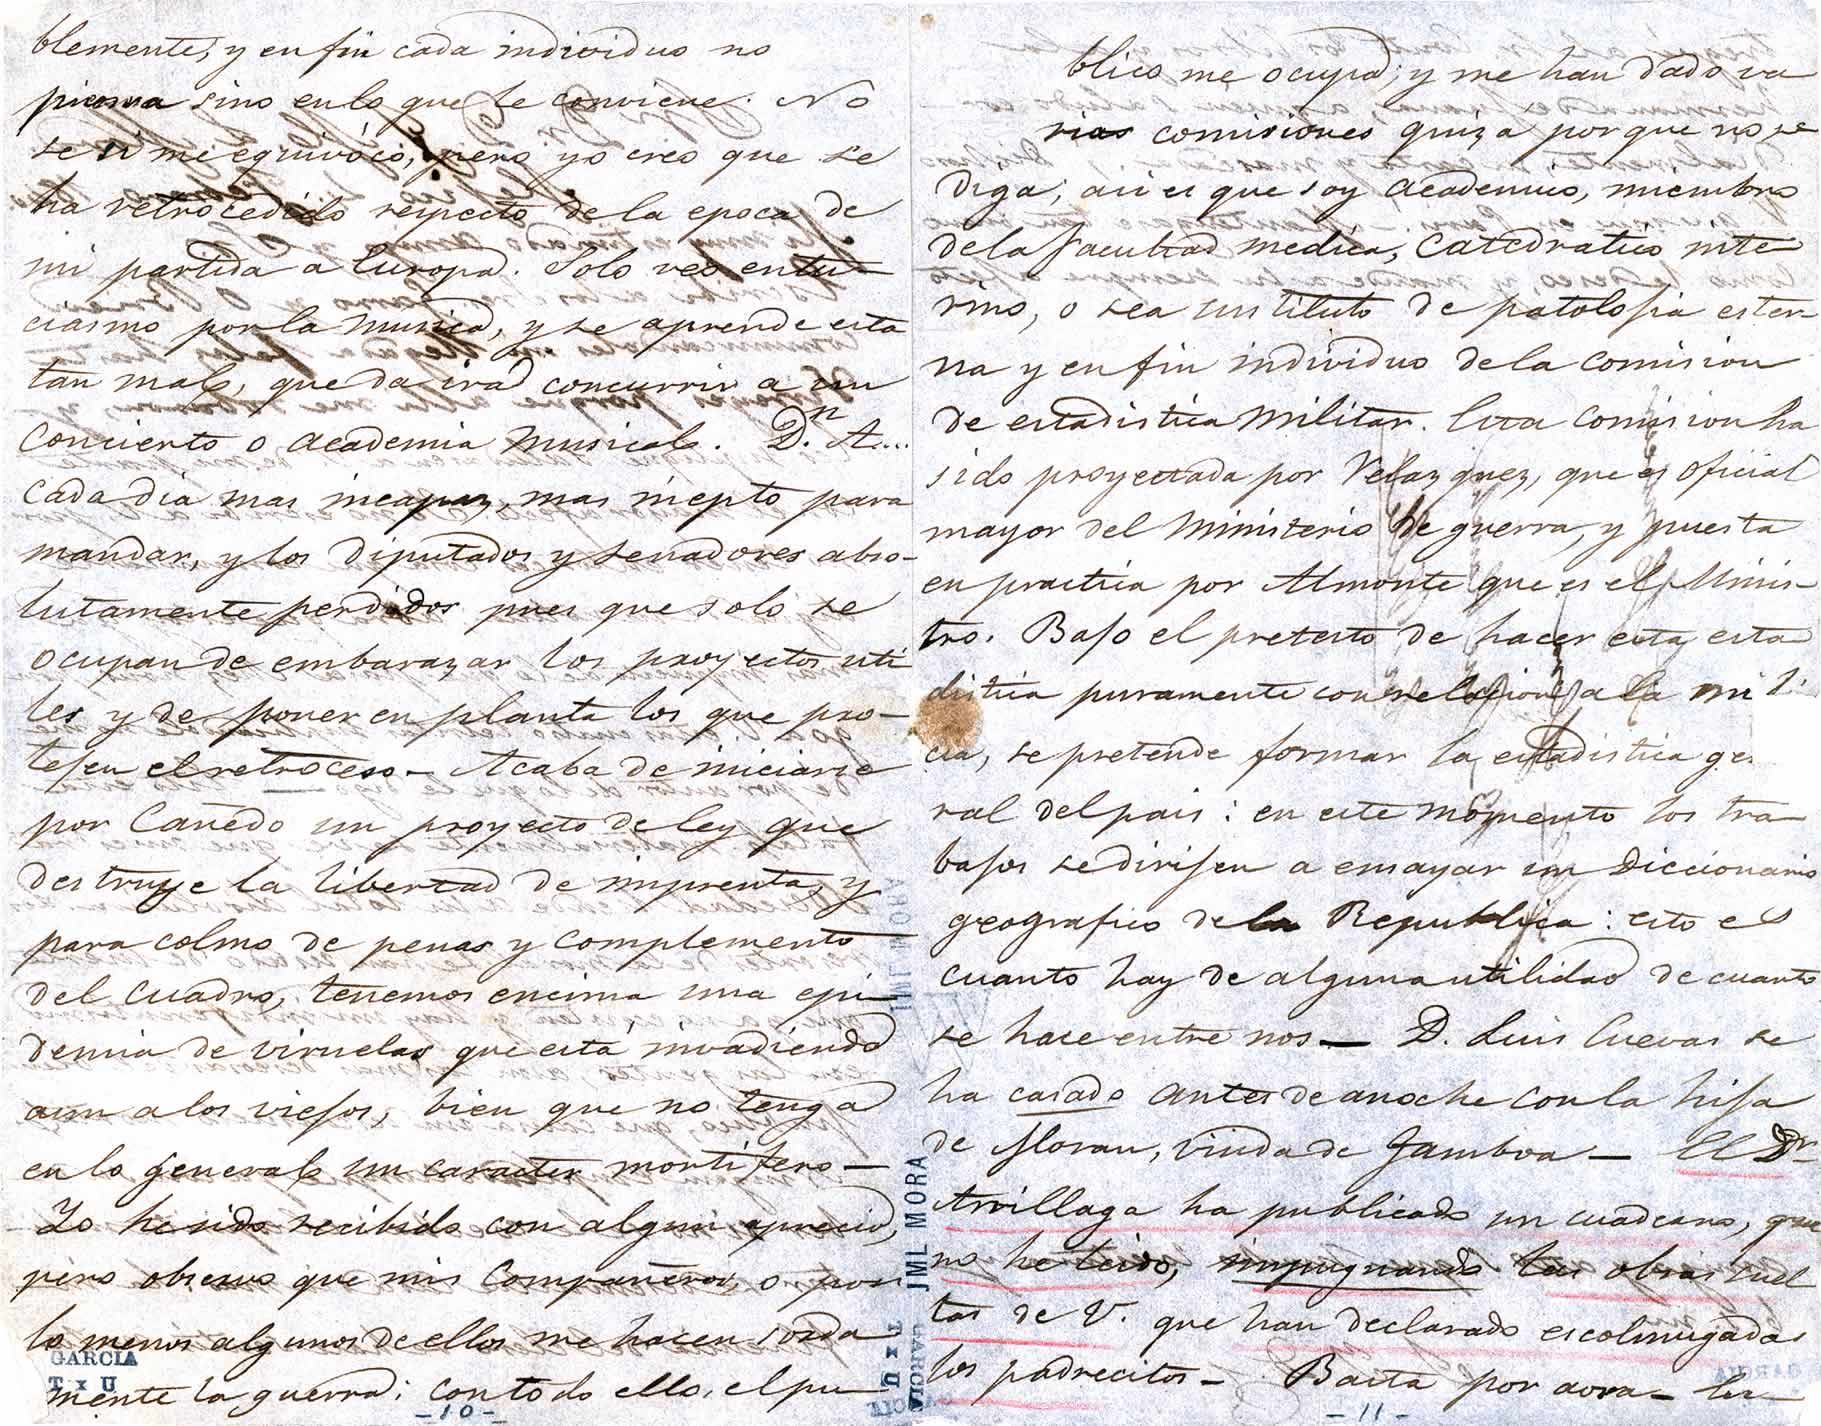 blemente, y en fin cada individuo no
piensa sino en lo que le conviene. No
se si me equivóco, pero yo creo que se
ha retrocedido respecto de la epoca de
mi partida a Europa. Solo veo entu-
ciasmo por la musica, y se aprende esta
tan mal, que da ira concurrir a un
concierto o academia musical. D.n A....
cada dia mas incapaz, mas inepto para
mandar, y los diputados y senadores abso-
lutamente perdidos pues que solo se
ocupan de embarazar los proyectos uti
les y de poner en planta los que pro-
tejen el retroceso — Acaba de iniciarse
por Cañedo un proyecto de ley que
destruye la libertad de imprenta, y
para colmo de penas y complemento
del cuadro, tenemos encima una epi
demia de viruelas que está invadiendo
aun a los viejos, bien que no tenga
en lo general un caracter mortifero —
Yo he sido recibido con algun aprecio,
pero observo que mis compañeros, o por
lo menos algunos de ellos me hacen sorda
mente la guerra; con todo ello, el pu
GARCIA
T x U
- 10 -
JML MORA
GARCIA
T x U
blico me ocupa; y me han dado va
rias comisiones quiza por que no se
diga; asi es que soy academico, miembro
de la facultad medica, catedratico inte
rino, o sea sustituto de patolojia ester-
na y en fin individuo de la comision
de estadistica militar. Esta comision ha
sido proyectada por Velazquez, que es oficial
mayor del ministerio de guerra, y puesta
en practica por Almonte que es el Minis-
tro. Bajo el pretesto de hacer esta esta
distica puramente con relacion a la mili
cia, se pretende formar la estadistica ge
ral del pais: en este momento los tra
bajos se dirijen a ensayar un Diccionario
geografico de la Republica: esto es
cuanto hay de alguna utilidad de cuanto
se hace entre nos — D. Luis Cuevas se
ha casado antes de anoche con la hija
de Moran, viuda de Gamboa — El Dr.
Arrillaga ha publicado un cuaderno, que
no he leido, impugnando las obras suel
tas de V. que han declarado escolmugadas
los padrecitos — Basta por aora —
- 11 -